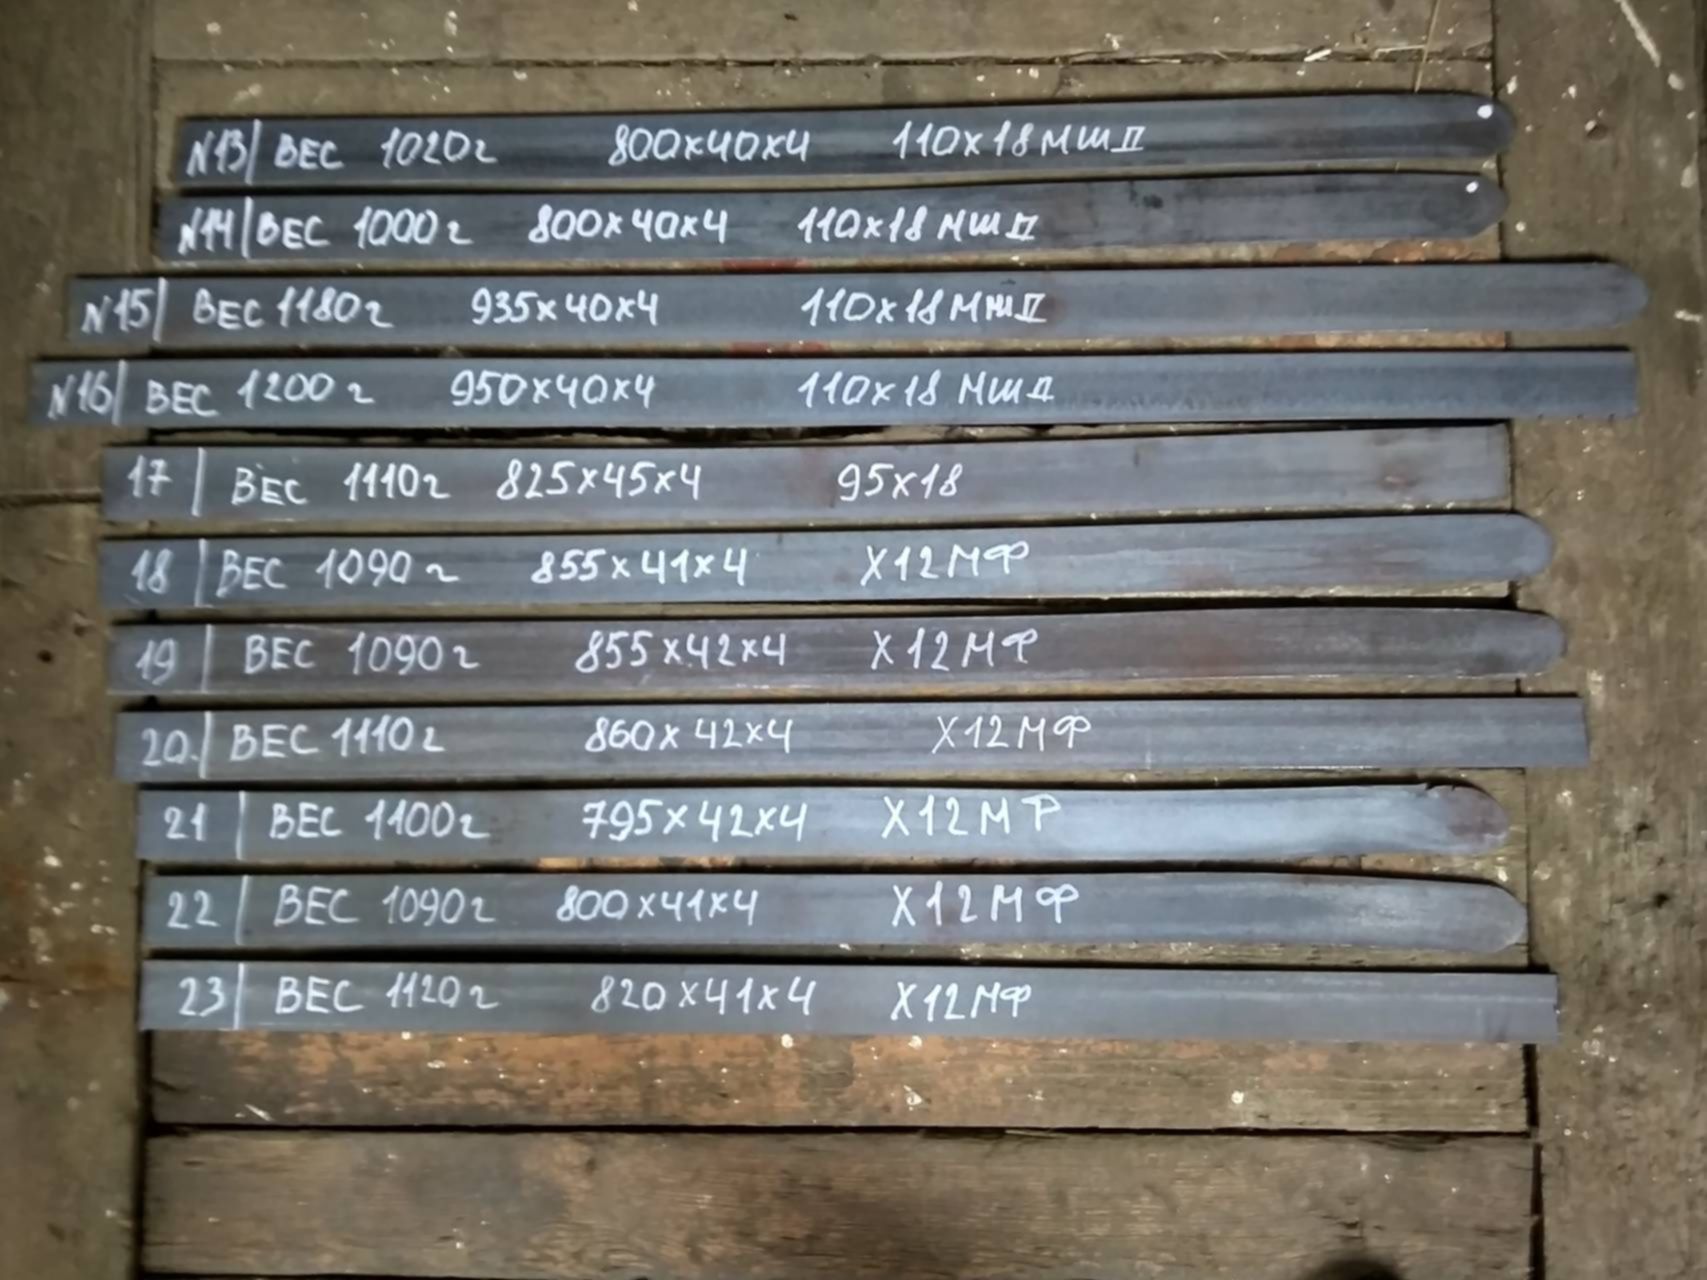 N13/ ВЕС 1020г 800х40х4 110х18МШД
N14/ ВЕС 1000г 800х40х4 110х18 МШД
N15/ ВЕС 1180г 935х40х4 110х18МШД
N16/ ВЕС 1200г 950х40х4 110х18 МШД
17 / ВЕС 1110г 825х45х4 95х18
18 / ВЕС 1090г 855х41х4 Х12МФ
19 / ВЕС 1090г 855х42х4 Х12МФ
20./ ВЕС 1110г 860х42х4 Х12МФ
21 / ВЕС 1100г 795х42х4 Х12МФ
22 / ВЕС 1090г 800х41х4 Х12МФ
23/ ВЕС 1120г 820х41х4 Х12МФ